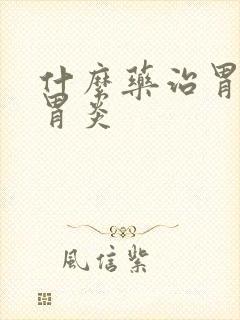 什麼藥治胃
胃炎
風信紫